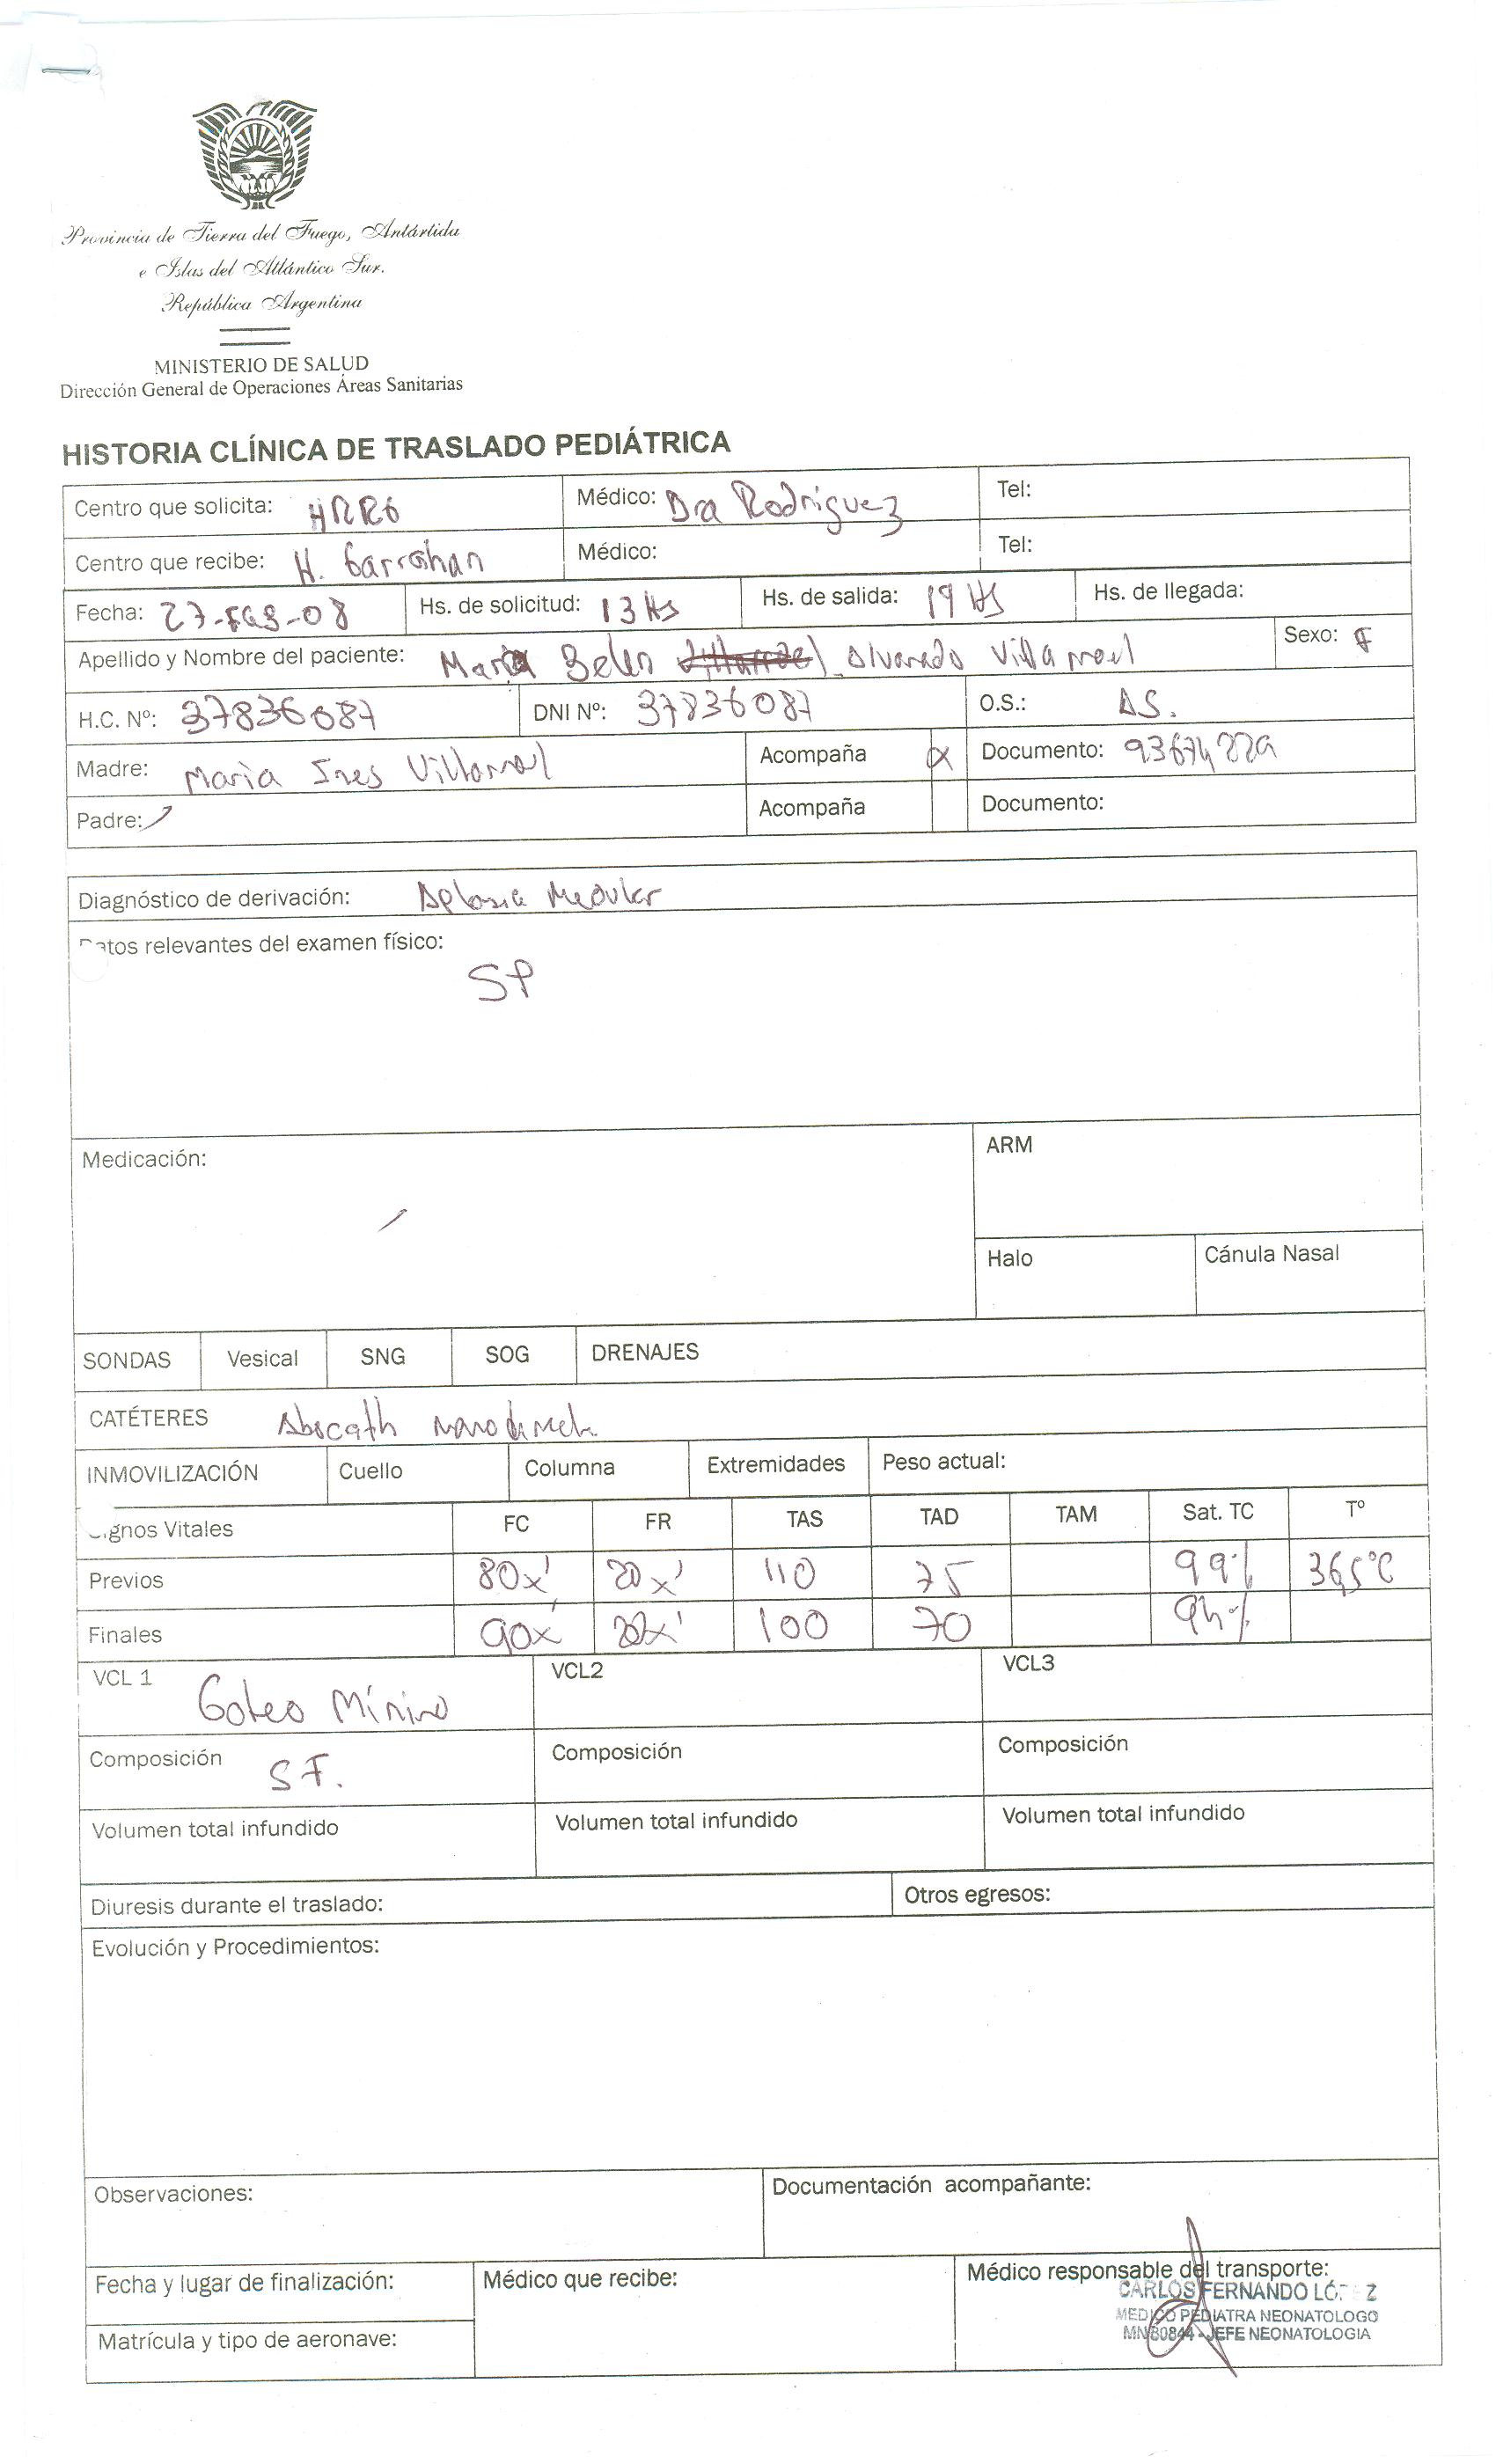 Provincia de Tierra del Fuego, Antártida
e Islas del Atlántico Sur.
República Argentina
MINISTERIO DE SALUD
Dirección General de Operaciones Áreas Sanitarias
HISTORIA CLÍNICA DE TRASLADO PEDIÁTRICA
Centro que solicita: HRRG Médico: Dra Rodriguez Tel:
Centro que recibe: H. Garrahan Médico: Tel:
Fecha: 27--08 Hs. de solicitud: 13 Hs Hs. de salida: 19 Hs Hs. de llegada:
Apellido y Nombre del paciente: Maria Belen Alvarado Villarroel Sexo: F
H.C. Nº: 37836087 DNI Nº: 37836087 O.S.: AS.
Madre: Maria Ines Villarroel Acompaña X Documento:
Padre: / Acompaña Documento:
Diagnóstico de derivación: Aplasia Medular
Datos relevantes del examen físico:
SP
Medicación: ARM
/
Halo Cánula Nasal
SONDAS Vesical SNG SOG DRENAJES
CATÉTERES Abocath
INMOVILIZACIÓN Cuello Columna Extremidades Peso actual:
Signos Vitales FC FR TAS TAD TAM Sat. TC Tº
Previos 80x' 20x' 110 75 99% 36,5°C
Finales 90x' 100 70 94%
VCL 1 Goteo Mínimo VCL2 VCL3
Composición S F. Composición Composición
Volumen total infundido Volumen total infundido Volumen total infundido
Diuresis durante el traslado: Otros egresos:
Evolución y Procedimientos:
Observaciones: Documentación acompañante:
Fecha y lugar de finalización: Médico que recibe: Médico responsable del transporte:
CARLOS FERNANDO LÓPEZ
MEDICO PEDIATRA NEONATOLOGO
MN 80844 - JEFE NEONATOLOGIA
Matrícula y tipo de aeronave: